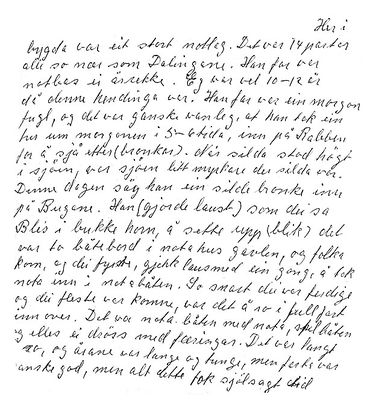 Her i
bygda var eit stort notlag. Det var 14 partar
alle so nær som Dalingane. Han far var
notbas ei årrekke. Eg var vel 10-12 år
då denne hendinga var. Han far var ein morgon
fugl, og det var ganske vanleg, at han tok ein
tur um morgonen i 5-6 tida, inn på Rabben
for å sjå etter (bronkar). Når silda stod høgt
i sjøen, var sjøen litt myrkare der silda var.
Denne dagen såg han ein silde bronke inn
på Bugane. Han (gjorde laust) som dei sa
Blés i bukke horn, å sette upp (blik) det
var to båtebord i notahus gavlen, og folka
kom, og dei fyrste, gjekk lausmed ein gong, å tok
nota inn i notabåten. So snart dei var ferdige
og dei fleste var komne, var det å ro i full fart
innover. Det var nota båten med nota, spelbåten
og elles ei dross med færingar. Det var tungt
ro, og årane var lange og tunge, men farta var
anske god, men alt dette tok sjølsagt tid